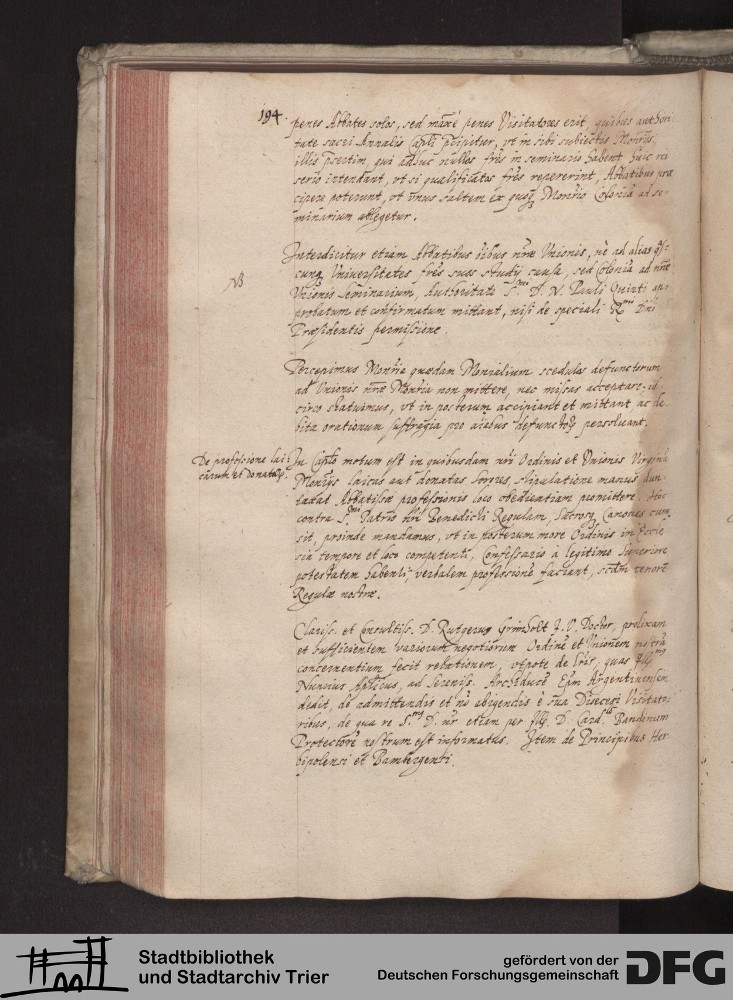 194.
penes Abbates solos, sed maxè penes Visitatores erit, quibus authori
tate sacri Annalis Capli pcipitur, vt in sibi subiectis Monrijs,
illis psertim, qui adhuc nullos frēs in seminario habent huic rei
serio intendant, vt si qualificatos frēs repererint, Abbatibus præ
cipere poterunt, vt vnus saltem ex quoq Monrio Coloniā ad se-
minarium ablegetur.
Interdicitur etiam Abbatibus oībus nrae Vnionis, nè ad alias
cunq Vniuersitates frēs suos studij causa, sed Coloniā ad nrae
NB
Vnionis Seminarium, Authoritate S.mi D. N. Pauli Quinti ap
probatum et confirmatum mittant, nisi de speciali R.mi Dni
Præsidentis permissione.
Percepimus Monria quædam Monialium scedulas defunctorum
ad Vnionis nrae Monria non mittere, nec missas acceptare: id
circo statuimus, vt in posterum accipiant et mittant ac de
bita orationum suffragia pro aīabus defunctoꝝ persoluant.
De professione lai:
carum et donataꝝ.
In Caplo motum est in quibusdam nri Ordinis et Vnionis Virginū
Monrijs laicas aut donatas sorores, stipulatione manus dun
taxat Abbatissæ professionis loco obedientiam pmittere. Hoc
contra S.mi Patris nri Benedicti Regulam, Sacrosq Canones cum
sit, proinde mandamus, vt in posterum more Ordinis in Eccle
sia tempore et loco competenti, Confessario a legitimo Superiore
potestatem habenti, verbalem professionē faciant, scdm tenorē
Regulæ nostræ.
Clariss. et Consultiss. D. Rutgerus Grimholt I. V. Doctor, prolixam
et sufficientem variorum negotiorum Ordinē et Vnionem nostrā
concernentium fecit relationem, vtpote de lris, quas Illmus
Nuncius Aplicus, ad Sereniss. Archiducē Epm Argentinensem
dedit, de admittendis et nō abigendis è sua Diœcesi Visitato:
ribus, de qua re S.mus D. nr etiam per Illm D. Card.lem Bandinum
Protectorē nostrum est informatus. Item de Principibus Her
bipolensi et Bambergensi.
Stadtbibliothek
und Stadtarchiv Trier
gefördert von der
Deutschen Forschungsgemeinschaft
DFG